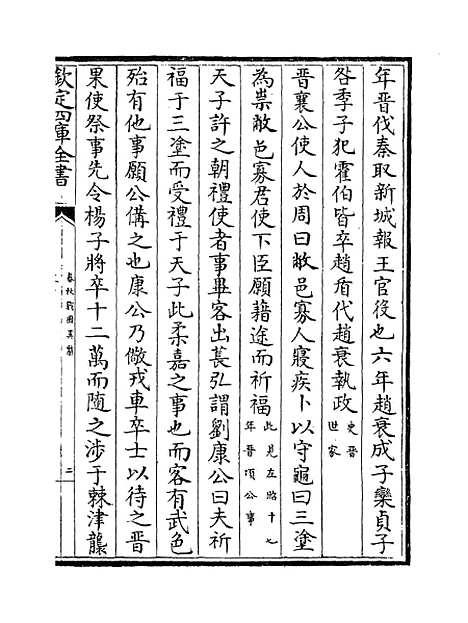 年晉伐秦取新城報王官役也六年趙衰成子欒貞子
咎季子犯霍伯皆卒趙盾代趙衰執政史晉世家
晉襄公使人於周曰敝邑寡人寢疾卜以守龜曰三塗
為祟敝邑寡君使下臣願藉途而祈福此見左昭十七年晉頃公事
天子許之朝禮使者事畢客出萇弘謂劉康公曰夫祈
福于三塗而受禮于天子此柔嘉之事也而客有武色
殆有他事願公備之也康公乃儆戎車卒士以待之晉
果使祭事先令楊子將卒十二萬而隨之涉于棘津襲
欽定四庫全書
春秋戰國異辭
三